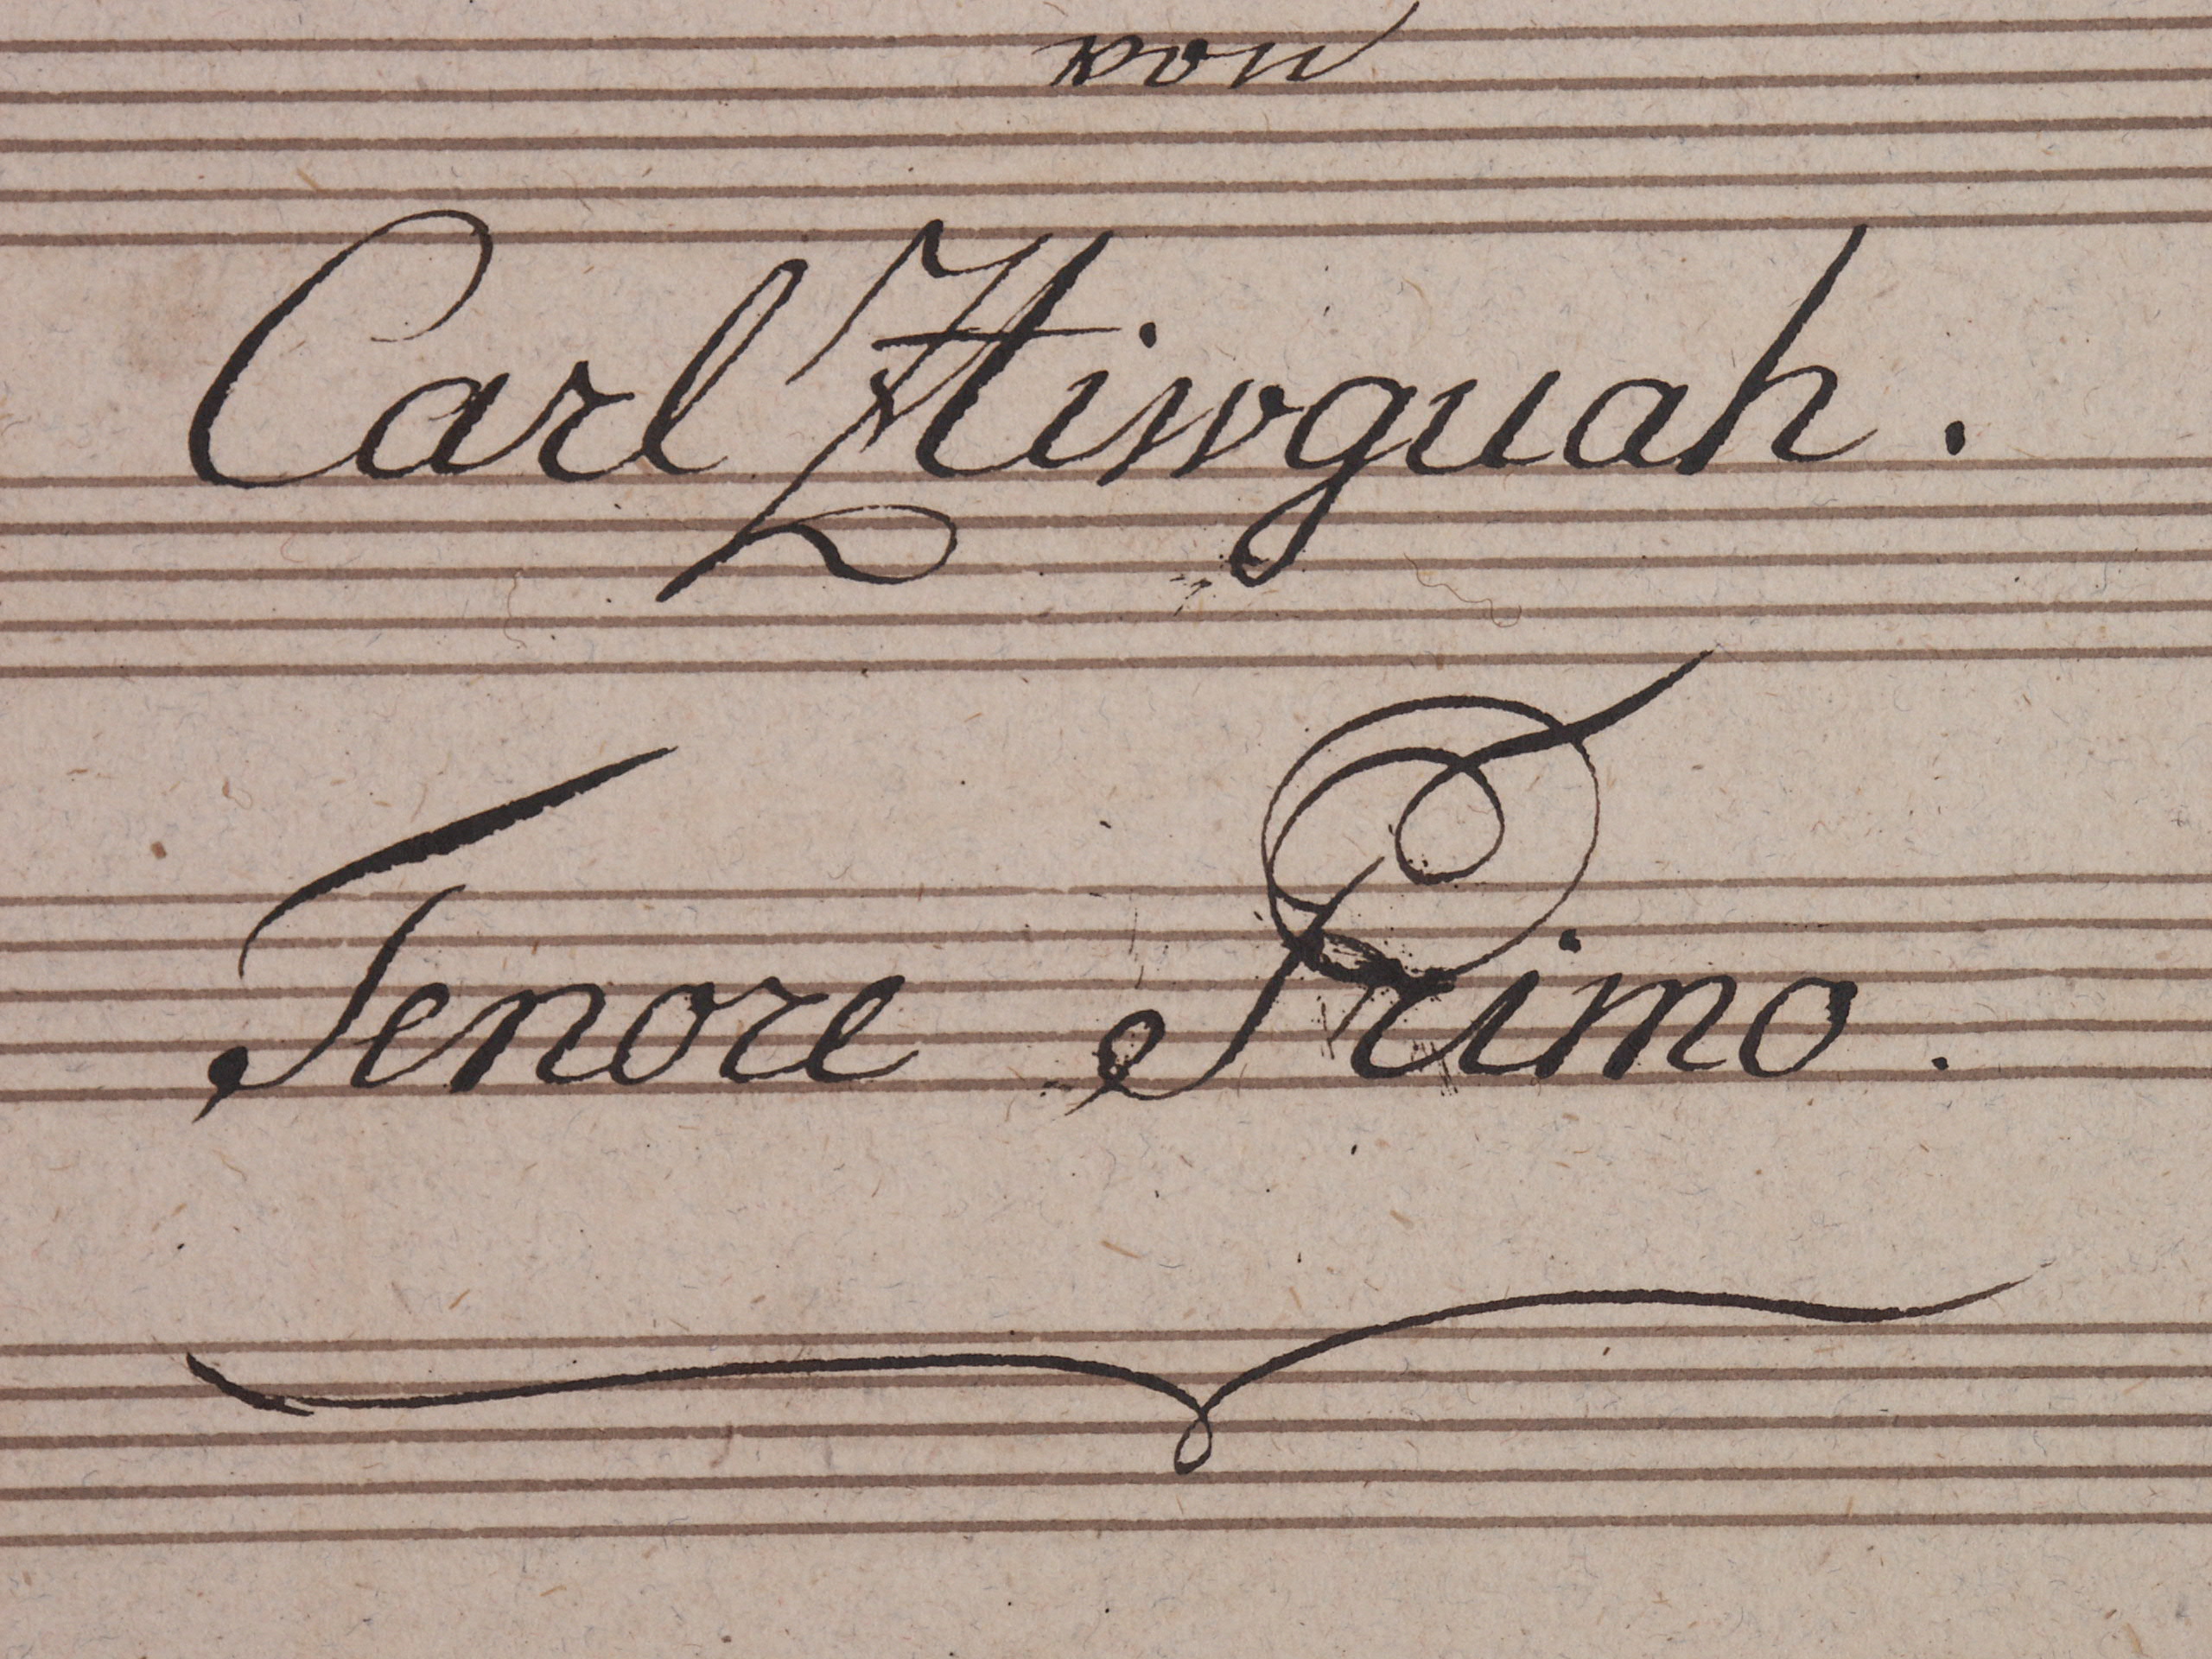 von
Carl Hiwguah.
Tenore Primo.